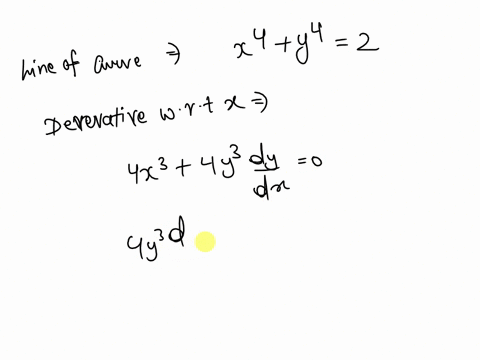 Line of curve ⇒ x⁴ + y⁴ = 2
Dererative w.r.t x ⇒
4x³ + 4y³ dy/dx = 0
4y³ d